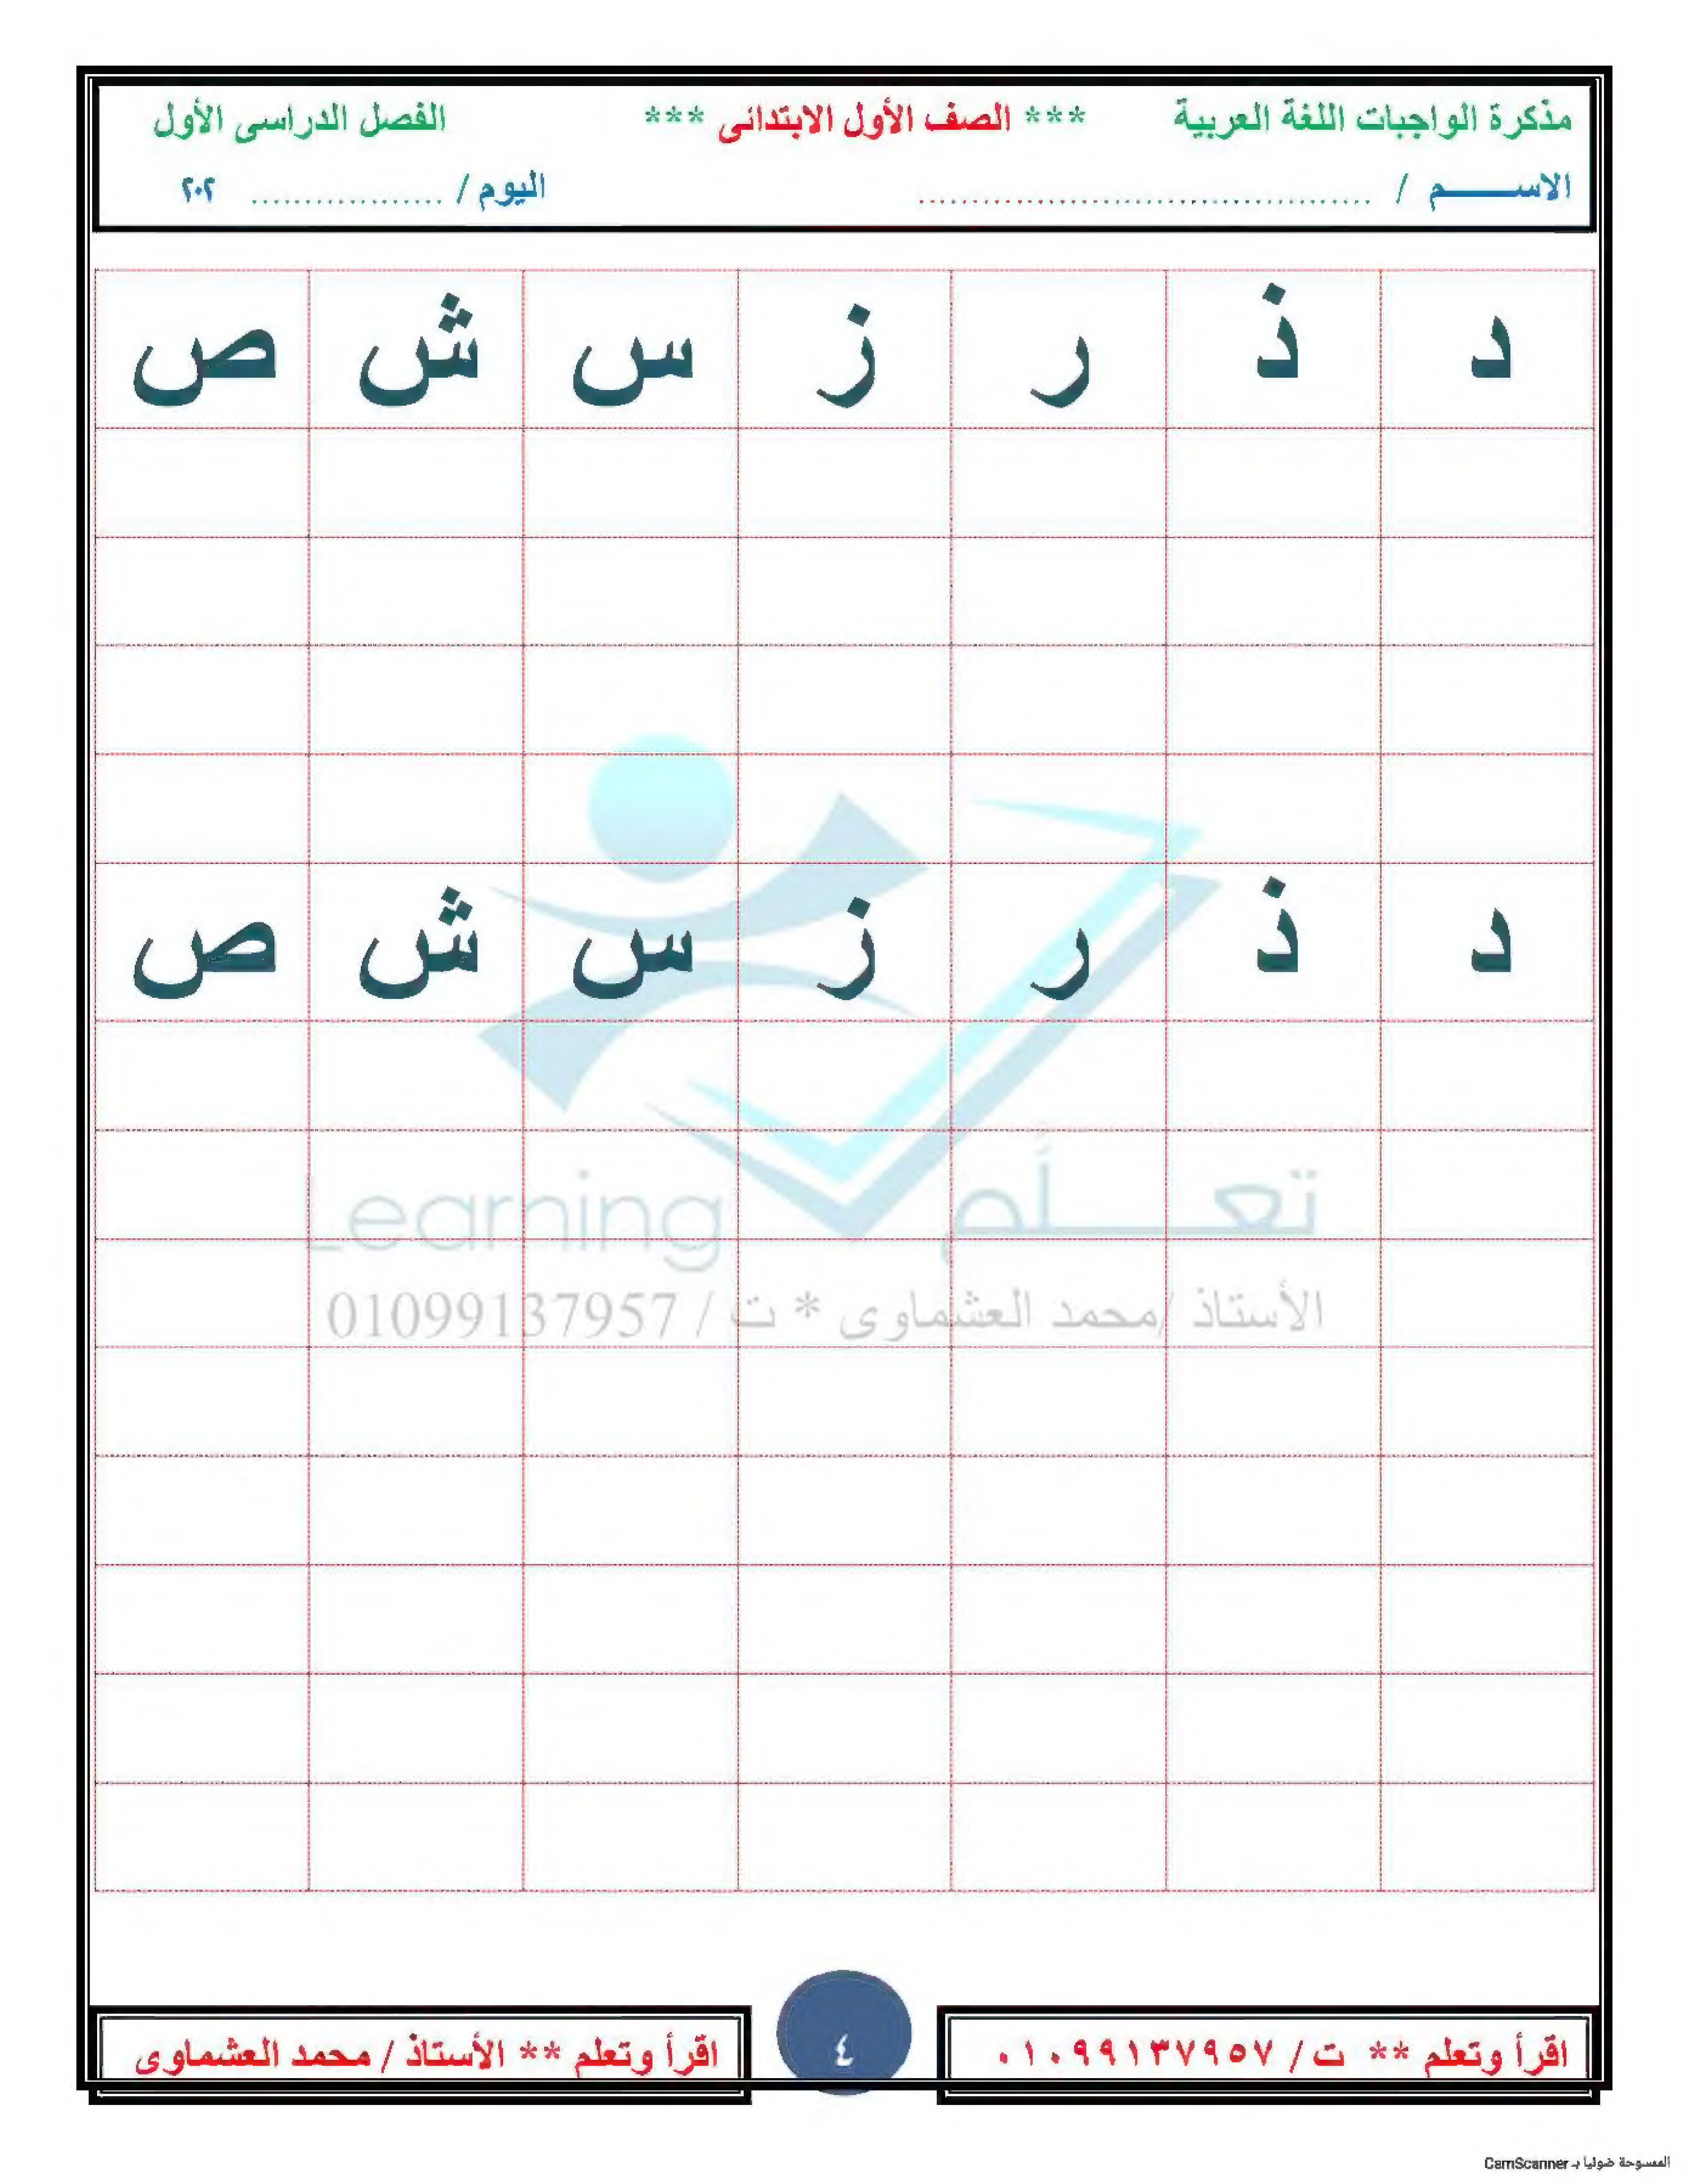 مذكرة الواجبات اللغة العربية *** الصف الأول الابتدائى *** الفصل الدراسى الأول
الاســـــم / .......................................... اليوم / .................. ٢٠٢
د ذ ر ز س ش ص
د ذ ر ز س ش ص
تعـــلَّم Learning
الأستاذ /محمد العشماوى * ت / 01099137957
اقرأ وتعلم ** ت / ٠١٠٩٩١٣٧٩٥٧
٤
اقرأ وتعلم ** الأستاذ / محمد العشماوى
الممسوحة ضوئيا بـ CamScanner